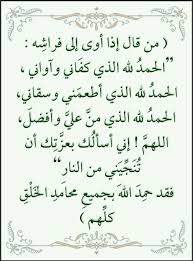 ( من قال إذا أوى إلى فراشِه :
”الحمدُ للهِ الذي كفَاني وآواني ،
الحمدُ للهِ الذي أطعمَني وسقاني،
الحمدُ للهِ الذي منَّ عليَّ وأفضلَ،
اللهمَّ ! إني أسألُك بعزَّتِك أن
تُنَجِّيَني من النار“
فقد حمِدَ اللهَ بجميعِ محامدِ الخَلْقِ
كلِّهم )